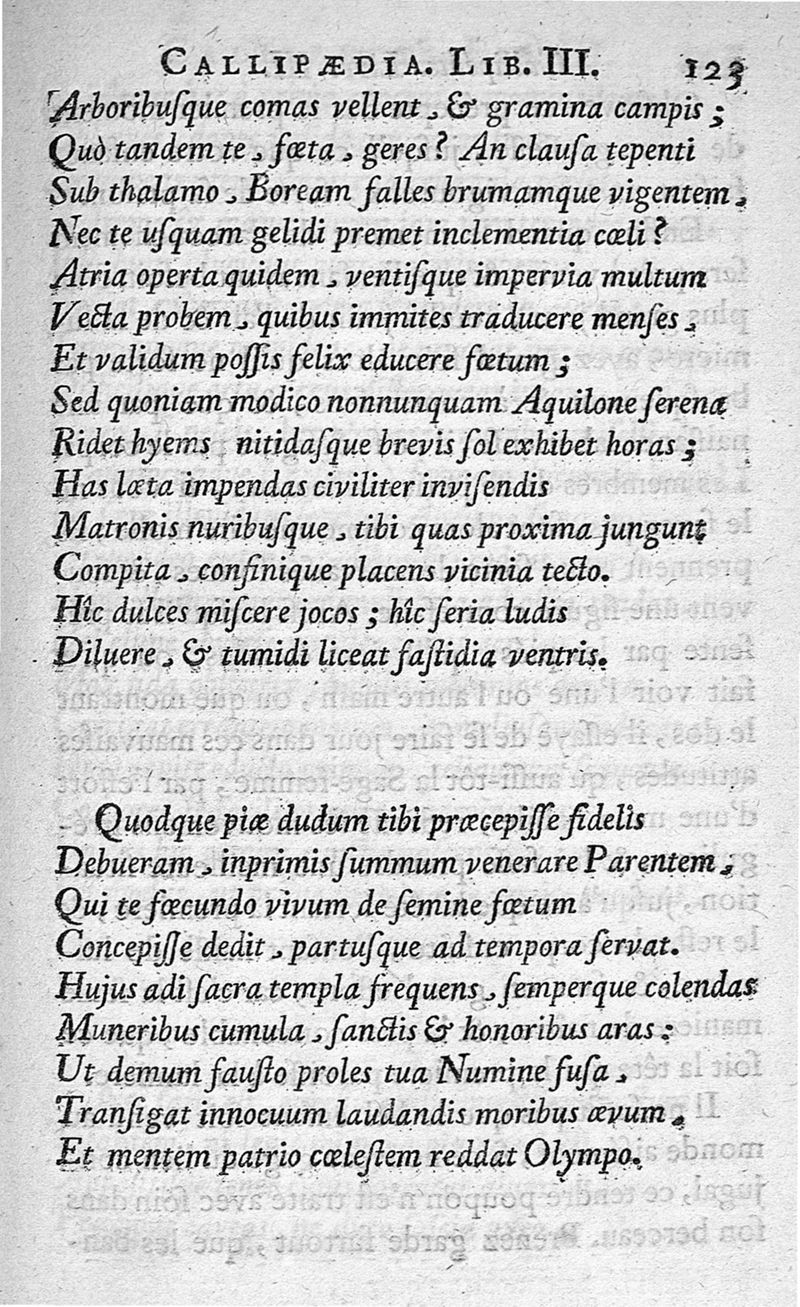 CALLIPÆDIA. LIB. III. 123
Arboribuſque comas vellent, & gramina campis;
Quò tandem te, fœta, geres? An clauſa tepenti
Sub thalamo, Boream falles brumamque vigentem,
Nec te uſquam gelidi premet inclementia cœli?
Atria operta quidem, ventiſque impervia multum
Vecta probem, quibus immites traducere menſes,
Et validum poſſis felix educere fœtum;
Sed quoniam modico nonnunquam Aquilone ſerena
Ridet hyems, nitidaſque brevis ſol exhibet horas;
Has læta impendas civiliter inviſendis
Matronis nuribuſque, tibi quas proxima jungunt
Compita, confinique placens vicinia tecto.
Hîc dulces miſcere jocos; hîc ſeria ludis
Diluere, & tumidi liceat faſtidia ventris.
Quodque piæ dudum tibi præcepiſſe fidelis
Debueram, inprimis ſummum venerare Parentem,
Qui te fœcundo vivum de ſemine fœtum
Concepiſſe dedit, partuſque ad tempora ſervat.
Hujus adi ſacra templa frequens, ſemperque colendas
Muneribus cumula, ſanctis & honoribus aras:
Ut demum fauſto proles tua Numine fuſa,
Tranſigat innocuum laudandis moribus ævum,
Et mentem patrio cœleſtem reddat Olympo.